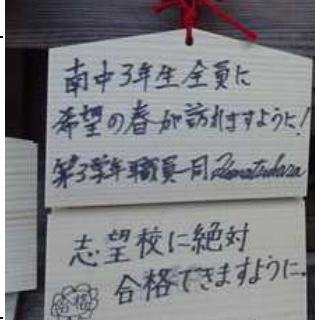 南中3年生全員に
希望の春が訪れますように!
第3学年職員一同
志望校に絶対
合格できますように。
合格